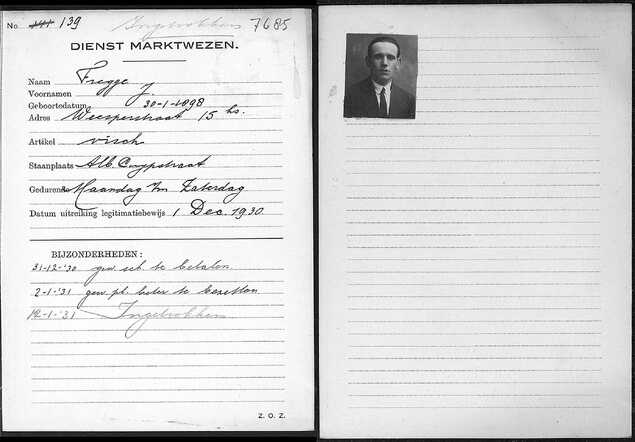 No 139 Ingetrokken 7685
DIENST MARKTWEZEN.
Naam Fregge
Voornamen J.
Geboortedatum 30-1-1898
Adres Weesperstraat 15 hs.
Artikel visch
Staanplaats Alb. Cuypstraat
Gedurende Maandag t/m Zaterdag
Datum uitreiking legitimatiebewijs 1 Dec. 1930
BIJZONDERHEDEN:
31-12-'30 gew. uit te betalen
2-1-'31 gew. pl. beter te bezetten
12-1-'31 Ingetrokken
Z. O. Z.